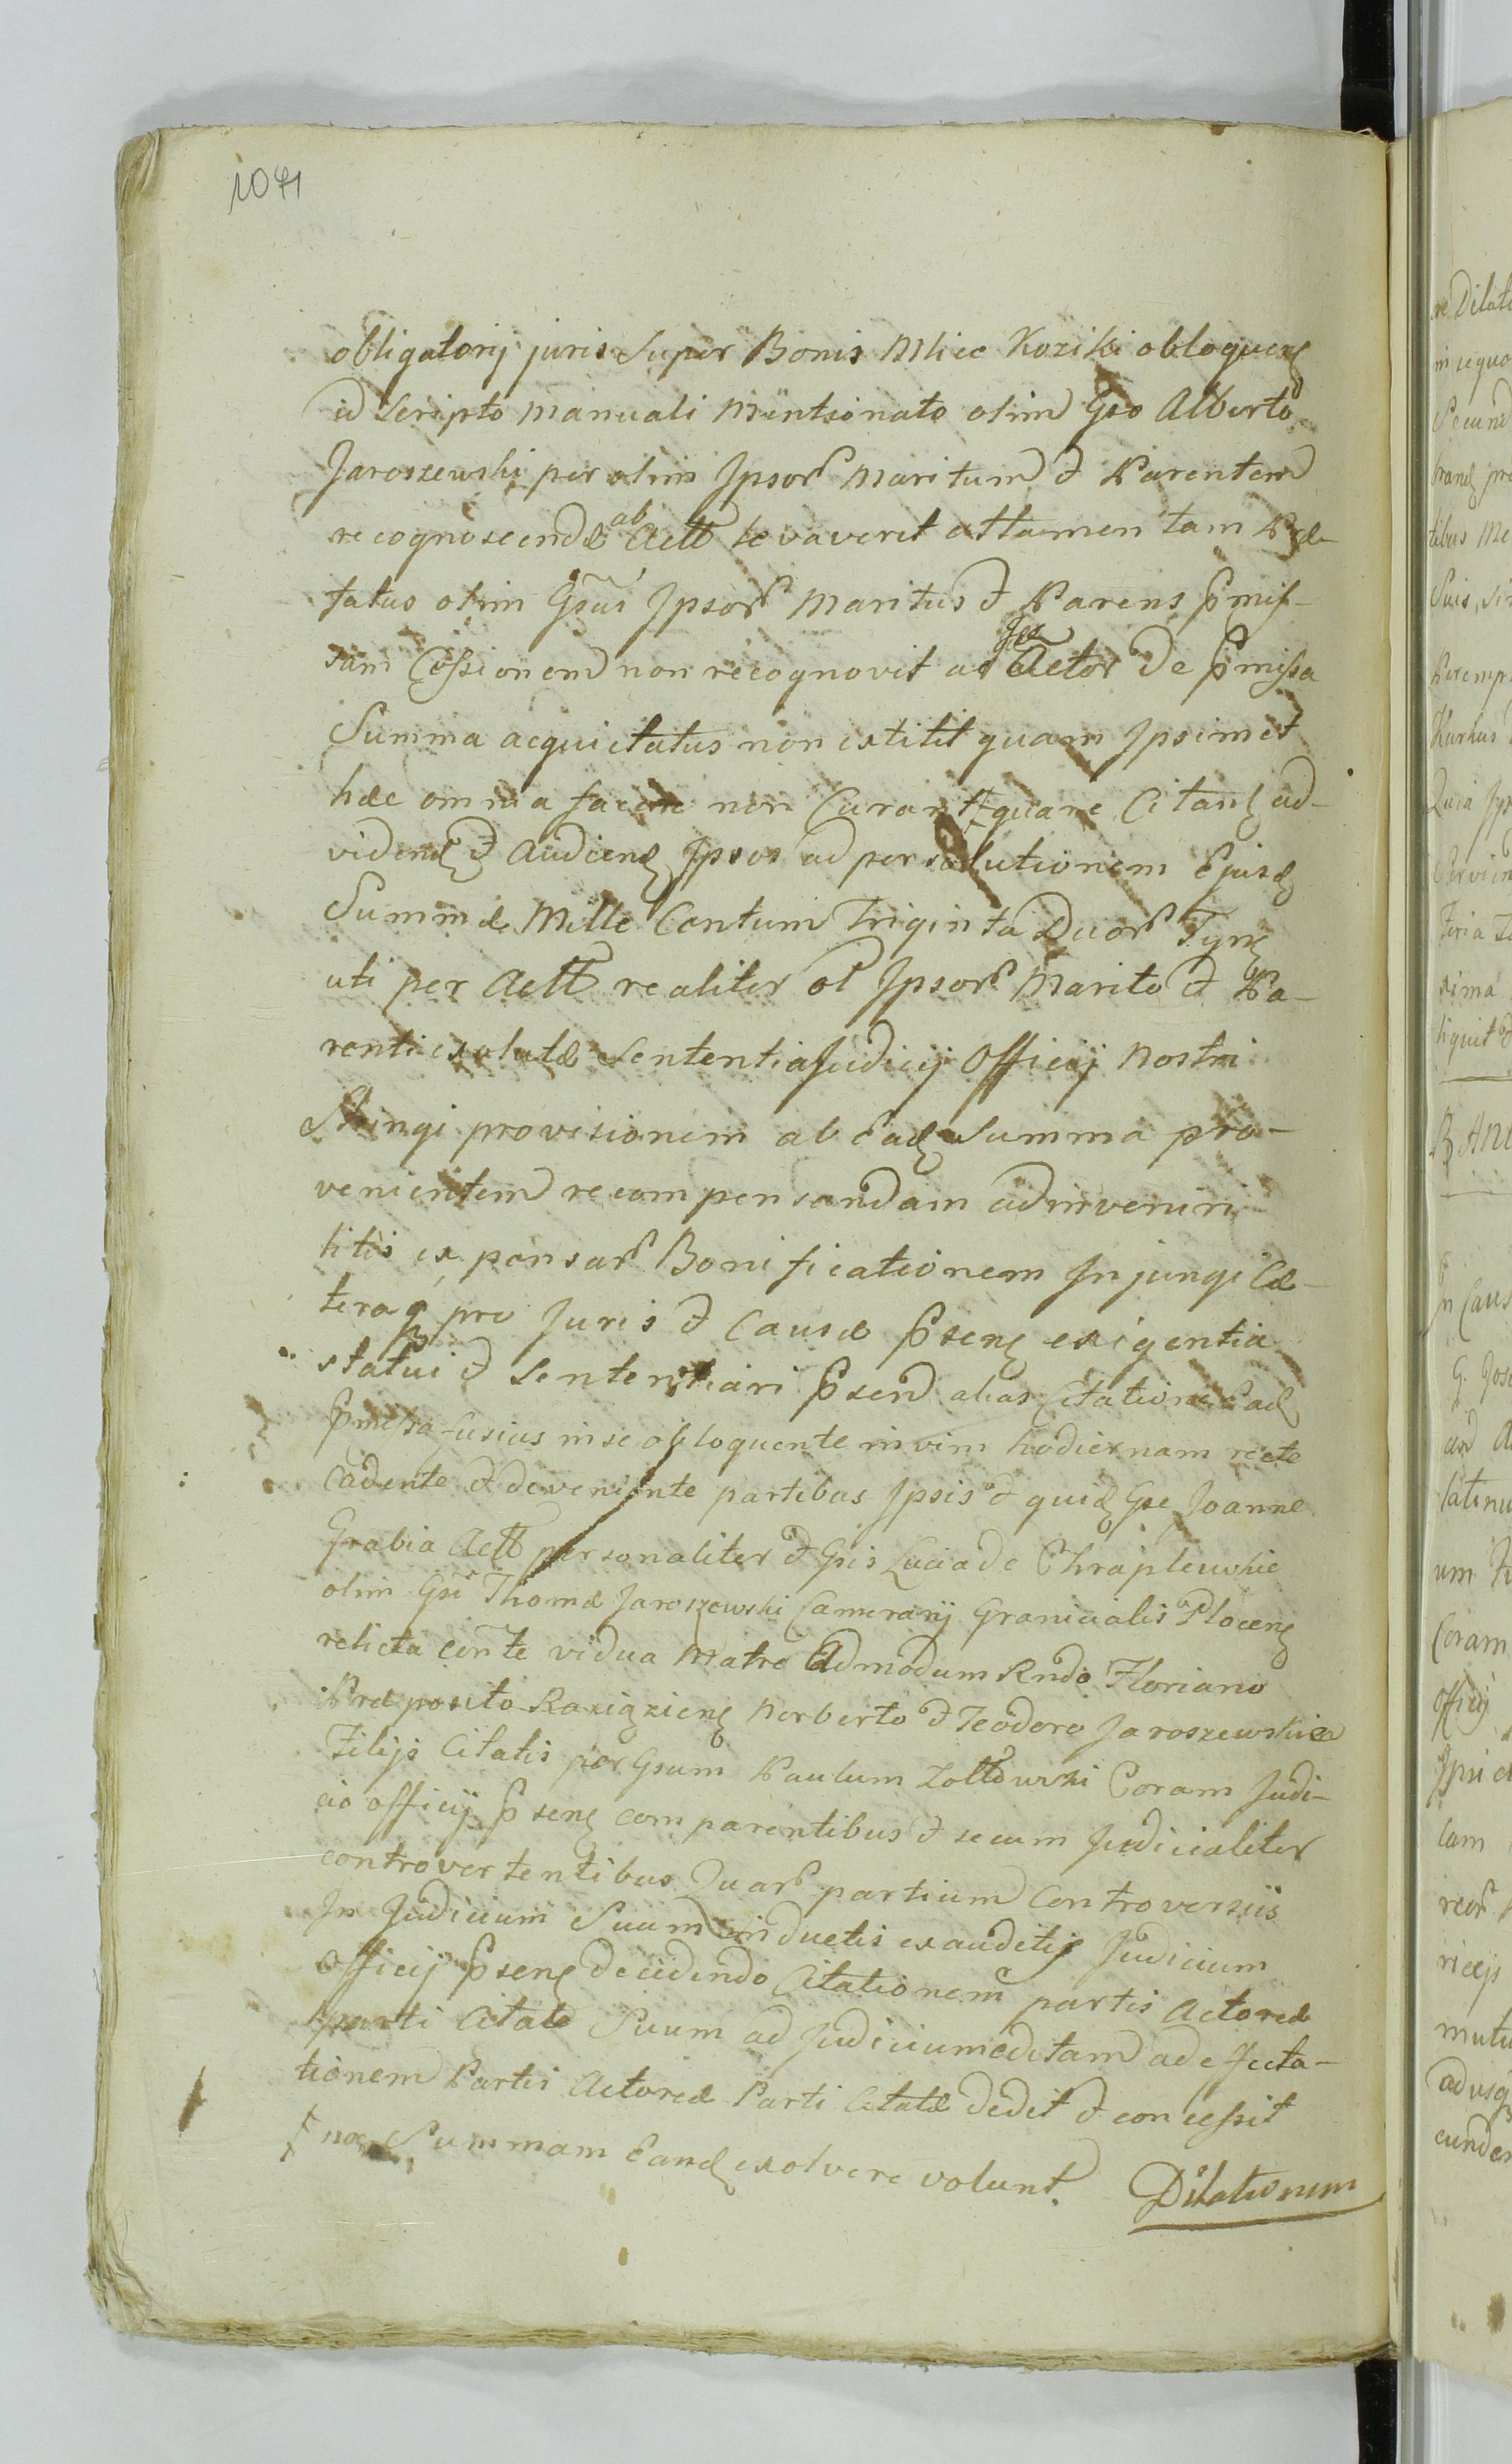 1041
obligatorij juris super Bonis Mlice Koziki obloquens
id scripto manuali mentionato olim Gso Alberto
Jaroszewski per olim Ipsor Maritum & Parentem
recognoscendæ ab Actt levaverit attamen tam Præ-
fatus olim Gsus Ipsor Maritus & Parens pmis-
sam Cessionem non recognovit ac Ips Actor de pmissa
Summa acquietatus non extitit quam Ipsimet
hæc omnia facere non Curant ꝉ quare Citanꝫ ad
videndꝫ & audiendꝫ Ipsos ad persolutionem Ejusdꝫ
Summæ Mille Centum Triginta Duor Tynꝫ
uti per Actt realiter ol Ipsor Marito & Pa-
renti exolutæ Sententia Judicij Officij nostri
Stringi provisionem ab Eadꝫ Summa pro-
venientem recompensandam adinveniri
litis expensar Bonificationem Injungi Cæ-
teraqꝫ pro Juris & Causæ psenꝫ exigentia
statui & Sententiari psend alias Citatione Eadꝫ
pmissa fusius in se obloquente in vim hodiernam recte
cadente & deveniente partibus Ipsis & quidꝫ Gse Joanne
Grabia Actt personaliter & Gsis Lucia de Chraplewskie
olim Gsi Thomæ Jaroszewski Camerarij Granicialis Plocenꝫ
relicta conte vidua Matre Admodum Rndo Floriano
Præposito Raziązienꝫ Norberto & Teodoro Jaroszewskie
Filijs Citatis per Gsum Paulum Zołtowski Coram Judi-
cio officij psenꝫ comparentibus & secum Judicialiter
controvertentibus Quar partium Controversiis
In Judicium Suum inductis exauditis Judicium
officij psenꝫ decidendo Citationem partis Actoreæ
parti Citatæ Suum ad Judicium editam ad affecta-
tionem Partis Actoreæ Parti Citatæ dedit & concessit
ꝉ nec Summam Eandꝫ exolvere volunt. Dilationem